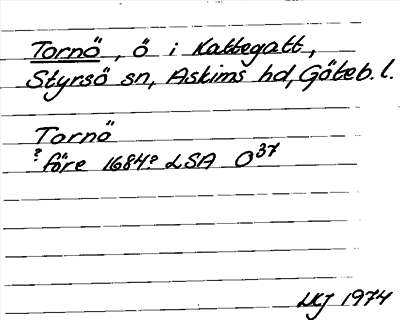 Tornö, ö i Kattegatt,
Styrsö sn, Askims hd, Göteb. l.
Tornö
? före 1684? LSA O37
LKJ 1974